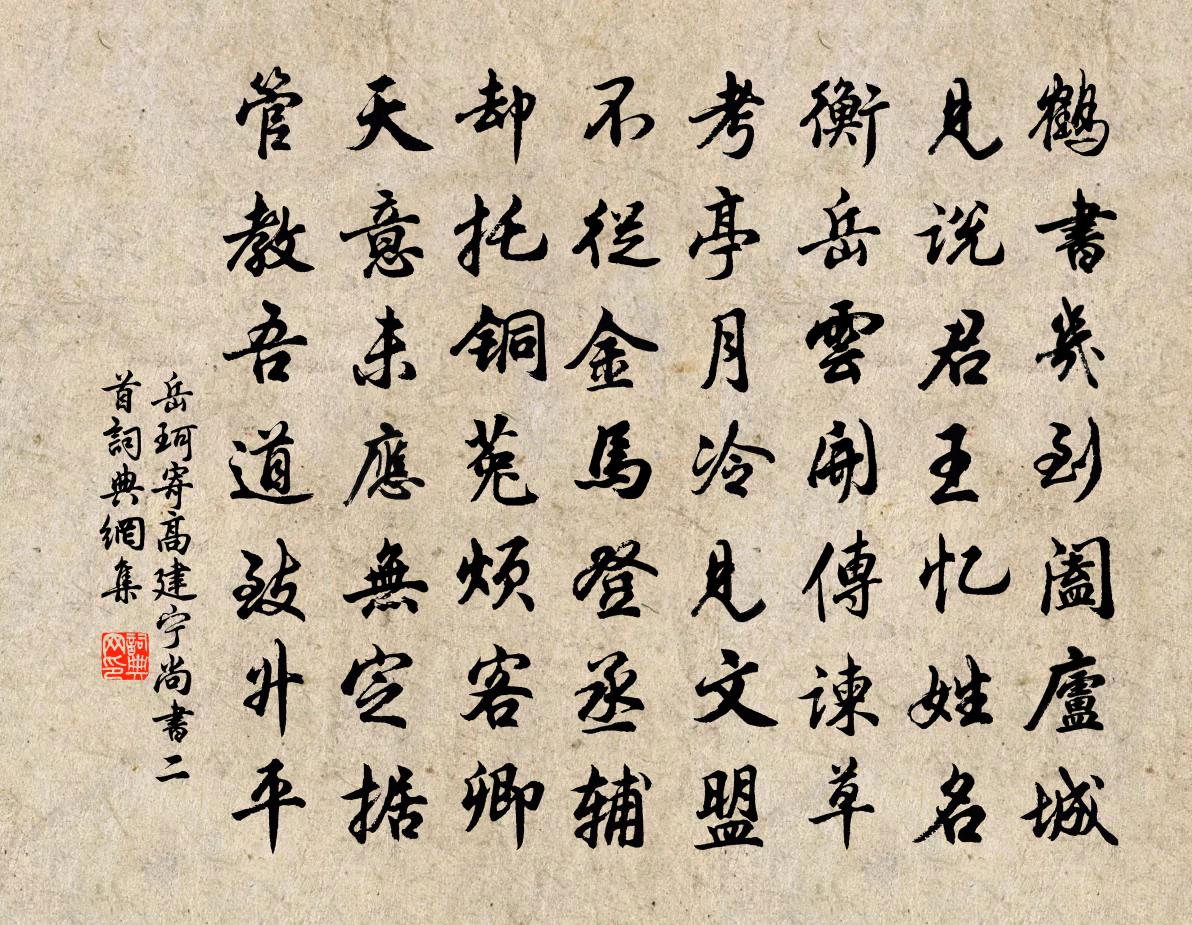 鶴書幾到闔廬城
見説君王忆姓名
衡岳雲開傳諫草
考亭月冷見文盟
不從金馬登丞輔
却托銅菟烦客卿
天意未應無定据
管教吾道致升平
岳珂寄高建宁尚書二
首詞典網集
詞典
网印